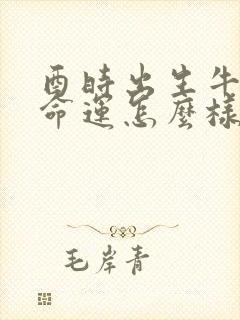 酉時出生牛
命運怎麼樣
毛岸青